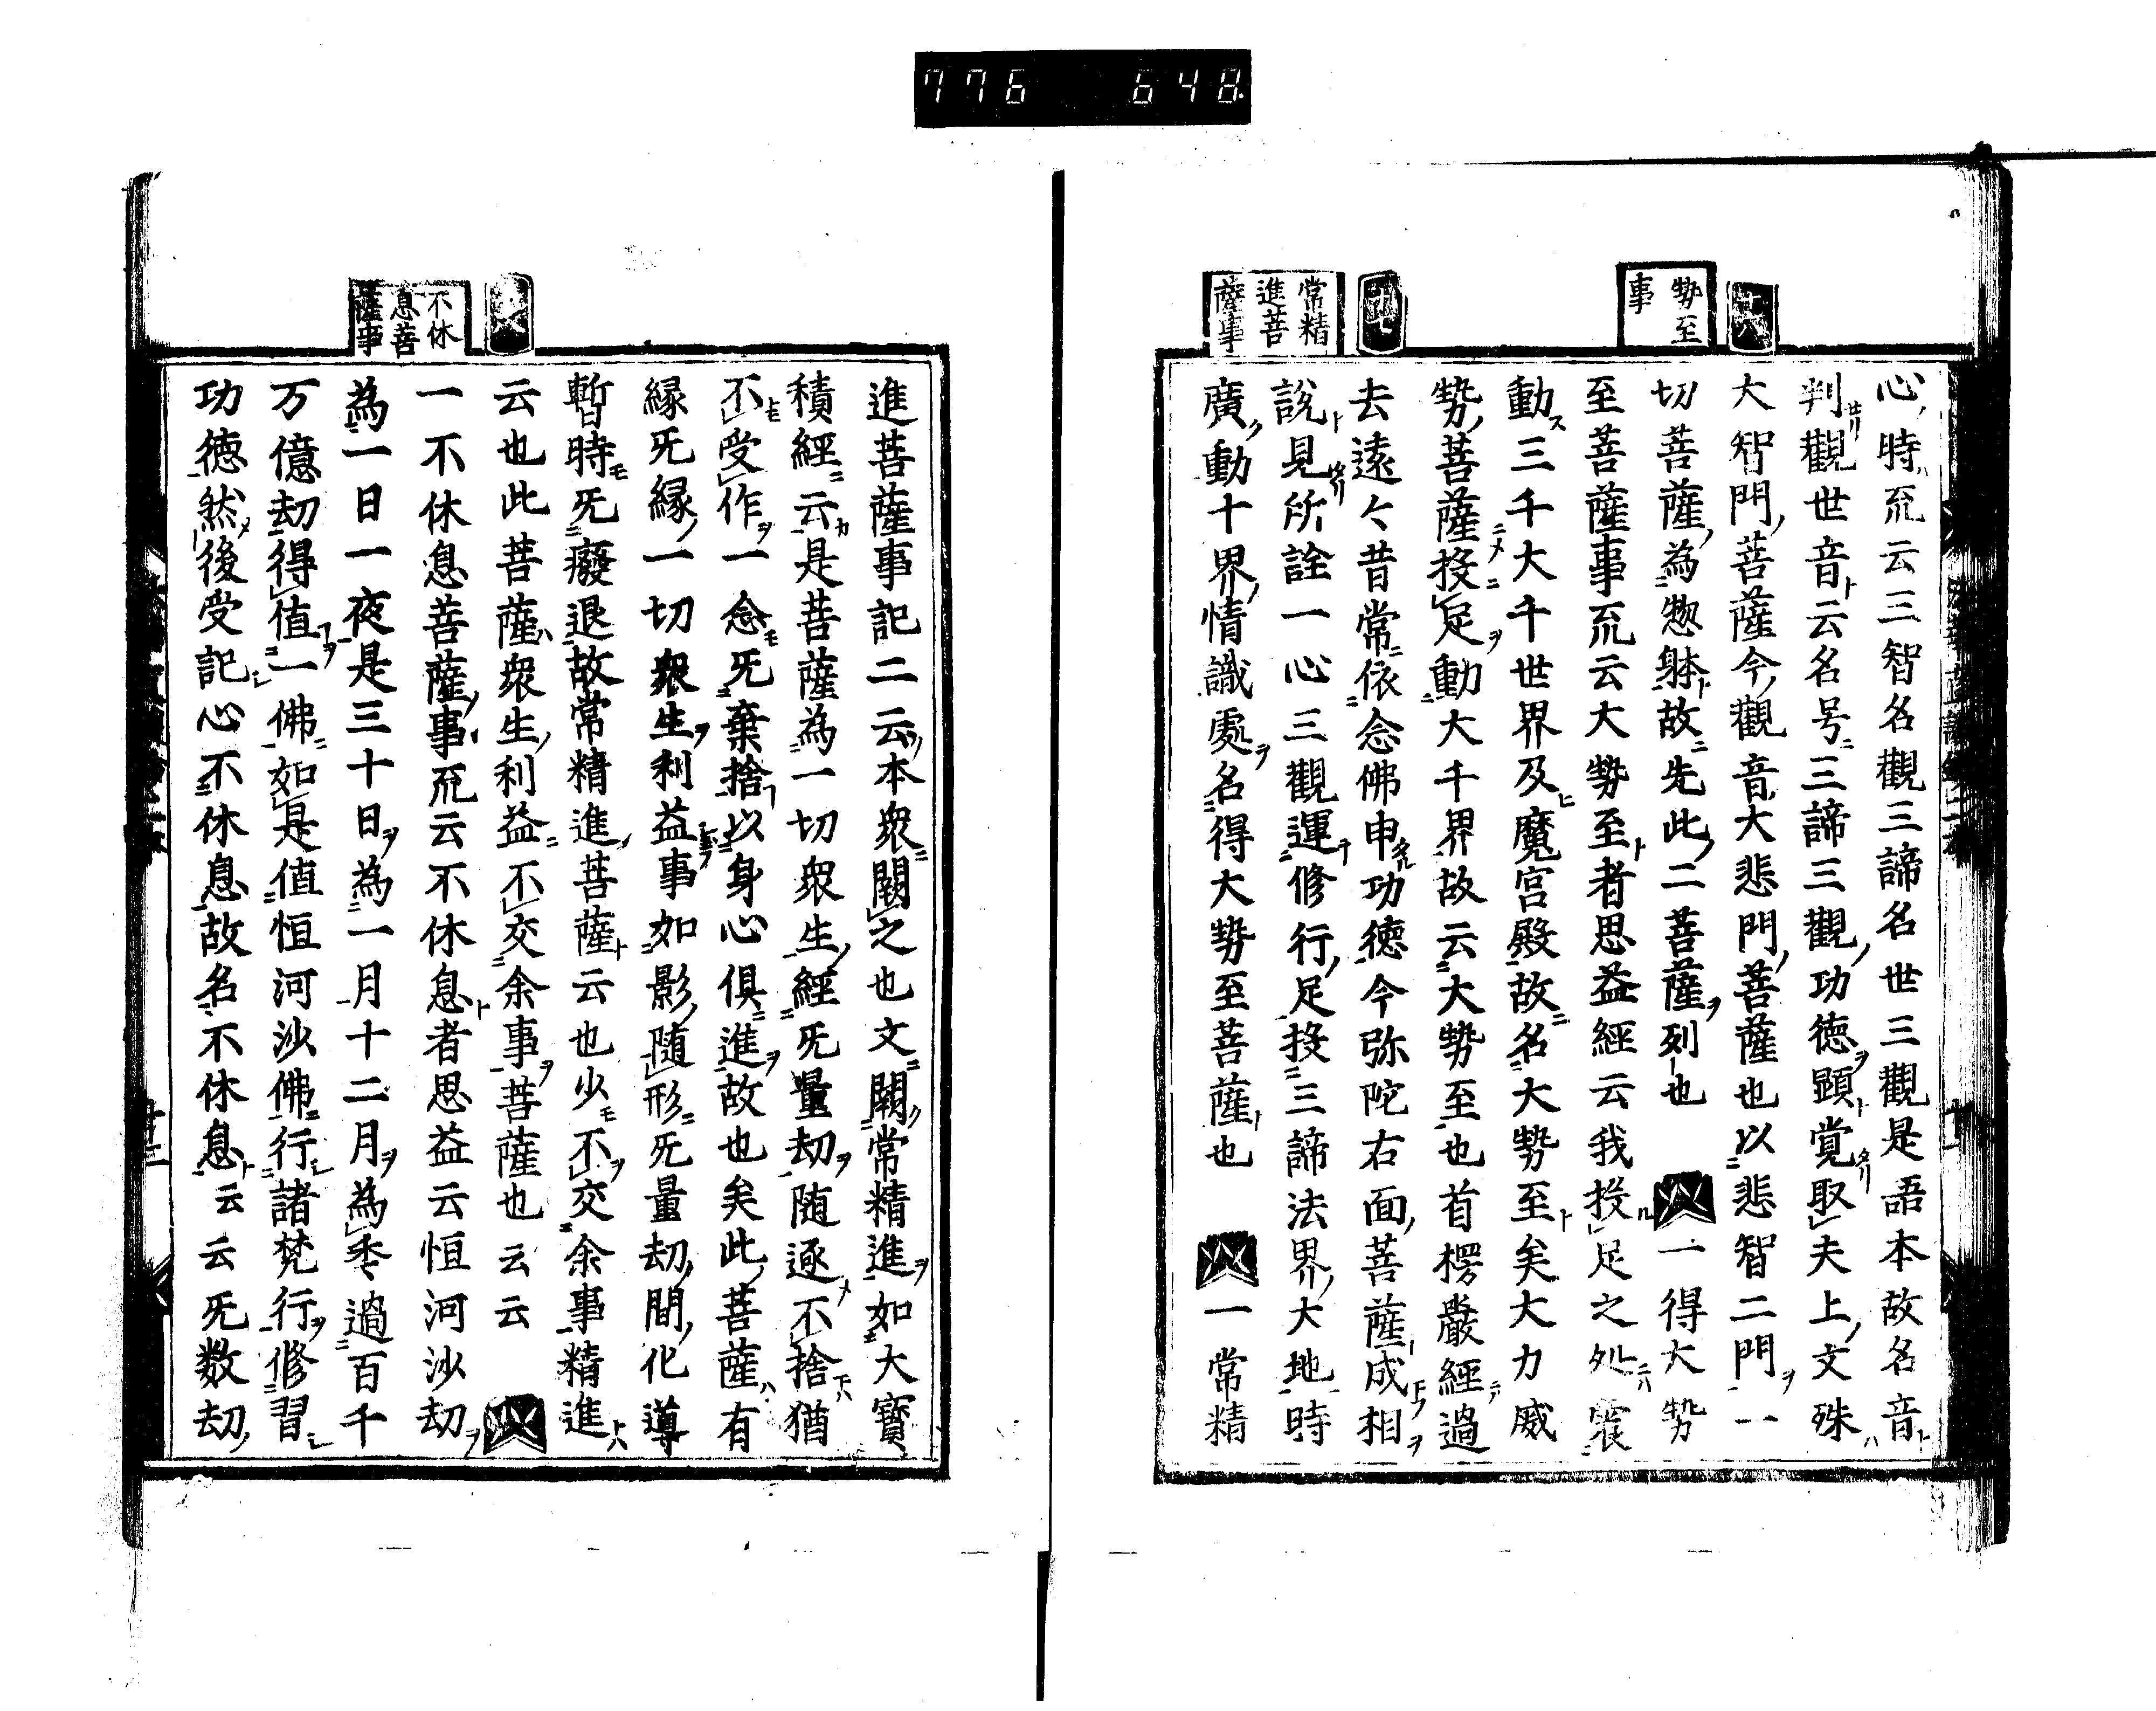 776 648
十六
勢至
事
十七
常精
進菩
薩事
心時疏云三智名觀三諦名世三觀是語本故名音
判觀世音云名号三諦三觀功徳顕覚取夫上文殊
大智門菩薩今觀音大悲門菩薩也以悲智二門一
切菩薩為惣躰故先此二菩薩列也 一得大勢
至菩薩事疏云大勢至者思益經云我投足之処震
動三千大千世界及魔宮殿故名大勢至矣大力威
勢菩薩投足動大千界故云大勢至也首楞嚴經過
去遠々昔常依念佛申功徳今弥陀右面菩薩成相
說見所詮一心三觀運修行足投三諦法界大地時
廣動十界情識處名得大勢至菩薩也 一常精
不休
息菩
薩事
進菩薩事記二云本衆闕之也文闕常精進如大寳
積經云是菩薩為一切衆生經旡量劫随逐不捨猶
不受作一念旡棄捨以身心倶進故也矣此菩薩有
縁旡縁一切衆生利益事如影随形旡量劫間化導
暫時旡癈退故常精進菩薩云也少不交余事精進
云也此菩薩衆生利益不交余事菩薩也云云
一不休息菩薩事疏云不休息者思益云恒河沙劫
為一日一夜是三十日為一月十二月為秊過百千
万億劫得値一佛如是値恒河沙佛行諸梵行修習
功徳然後受記心不休息故名不休息云云旡数劫